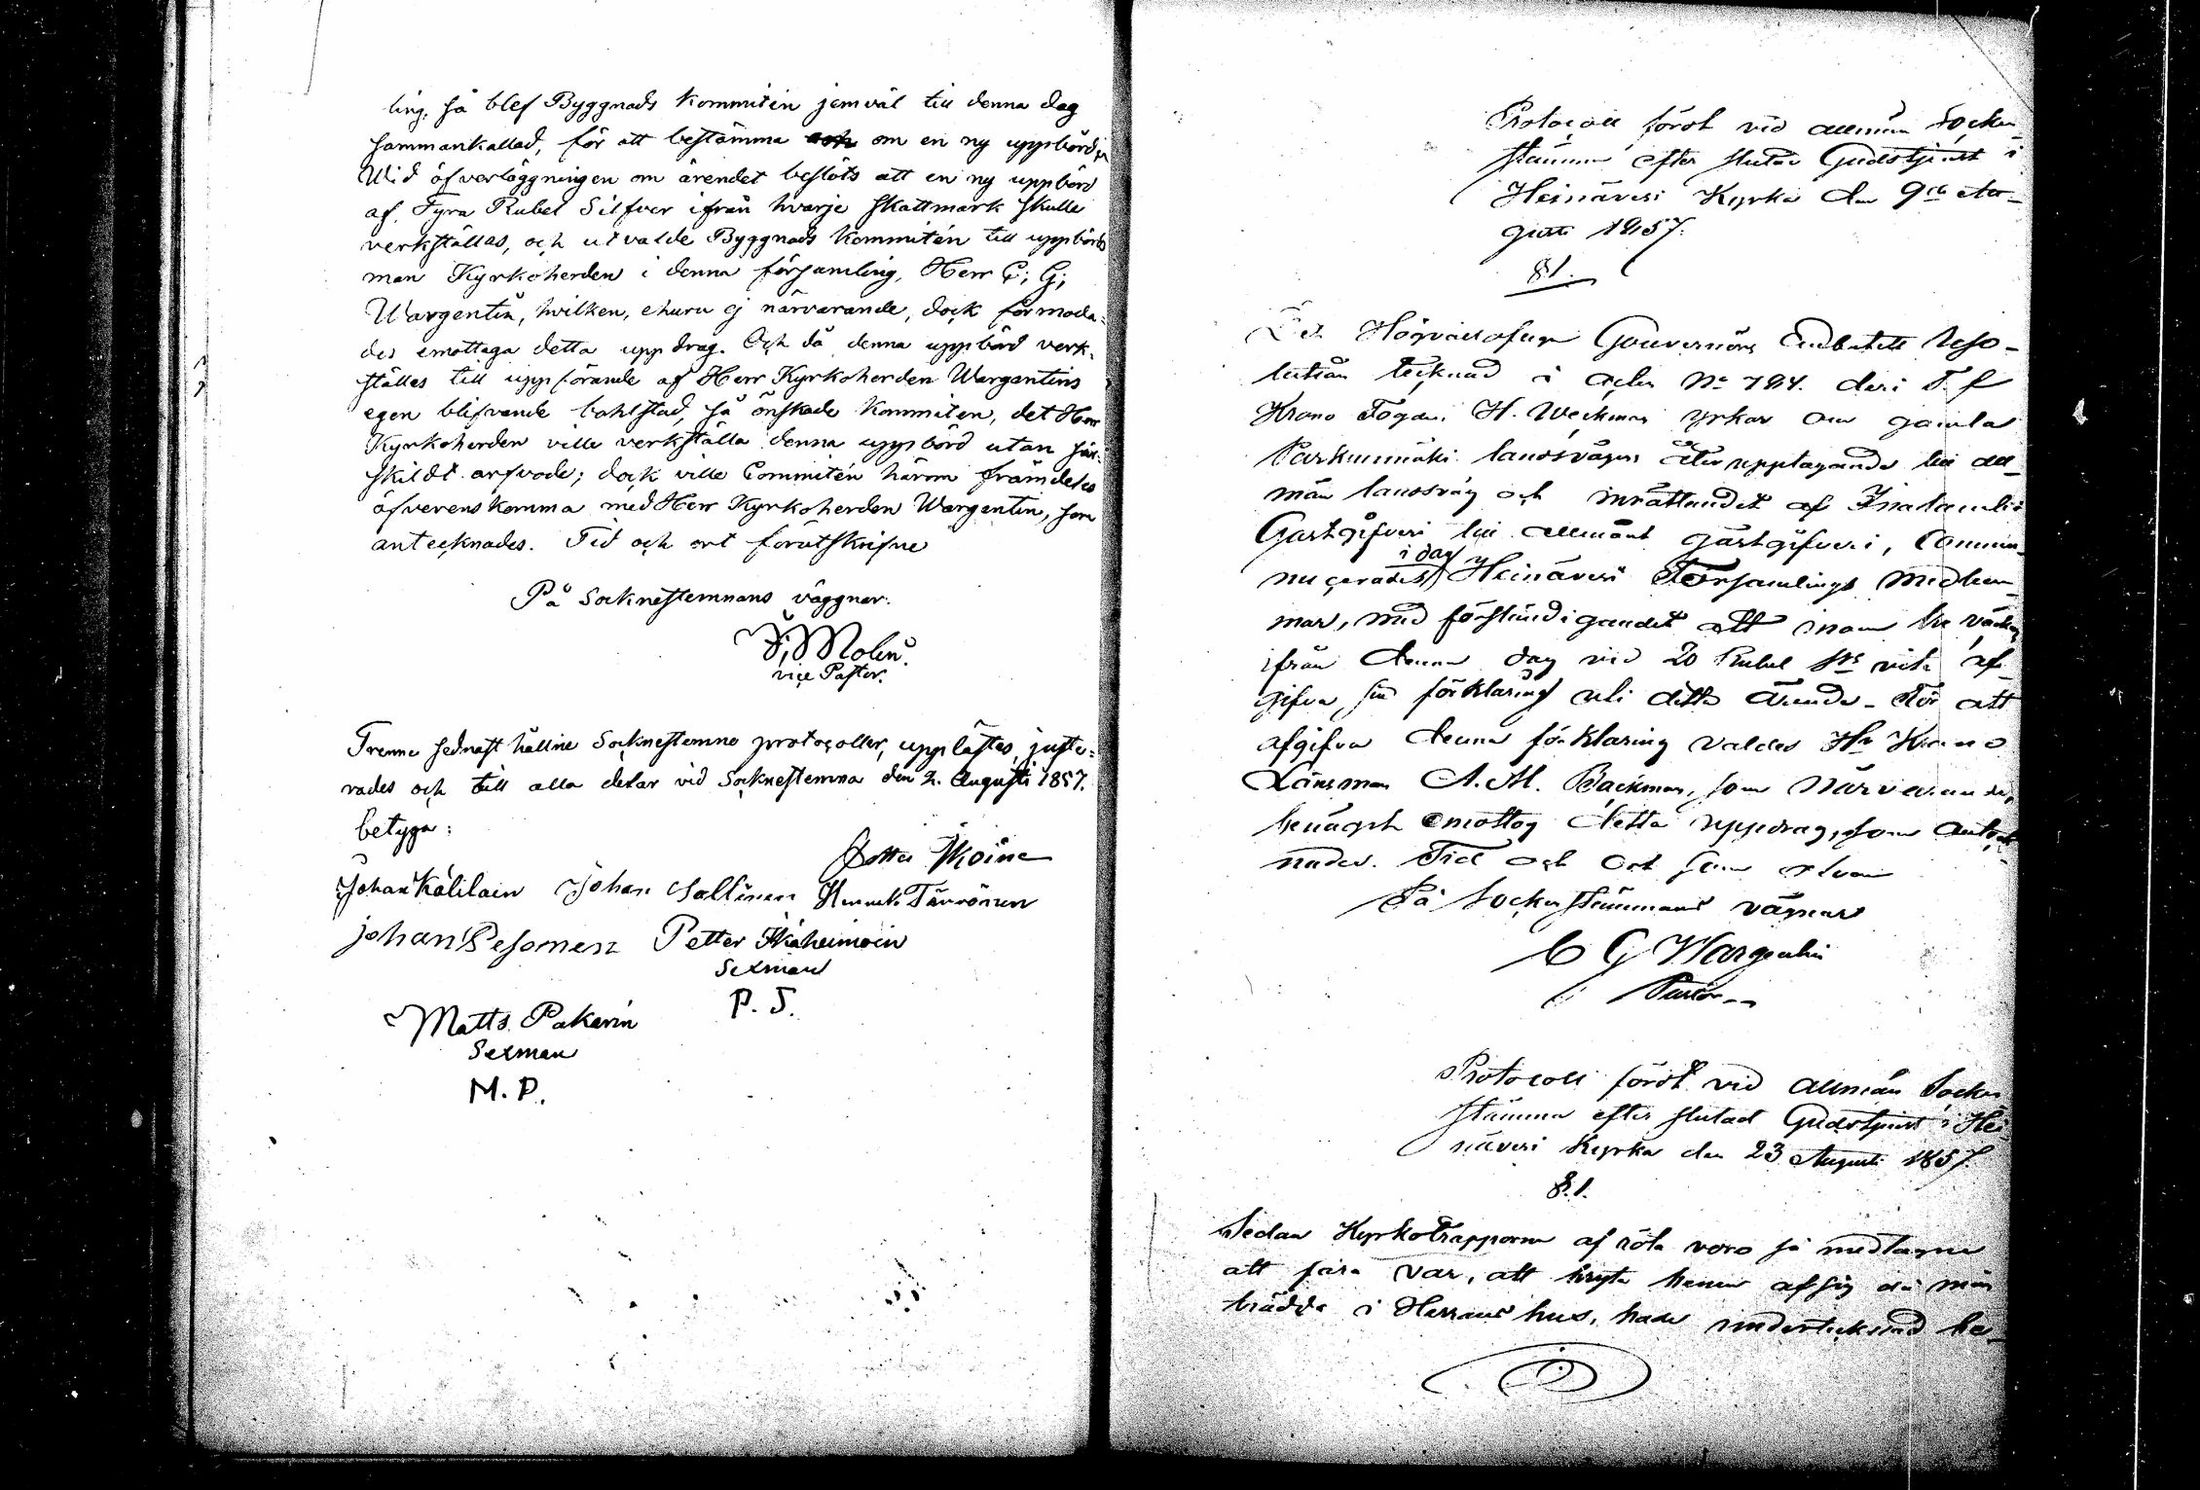 ling, så blef Byggnads Kommitén jemväl till denna dag
sammankallad, för att bestämma om en ny uppbörd,
Wid öfverläggningen om ärendet beslöts att en ny uppbörd
af Fyra Rubel Silfver ifrån hvarje Skattmark skulle
verkställas, och utvalde Byggnads Kommitén till uppbörds
man Kyrkoherden i denna församling, Herr C; G;
Wargentin, hvilken, ehuru ej närvarande, dock förmoda-
des emottaga detta uppdrag. Och då denna uppbörd verk-
ställes till uppförande af Herr Kyrkoherden Wargentins
egen blifvande bohlstad, så önskade Kommiten, det Herr
Kyrkoherden ville verkställa denna uppbörd utan sär-
skildt arfvode; dock ville Committén härom framdeles
öfverenskomma med Herr Kyrkoherden Wargentin, som
antecknades. Tid och ort förutskrifne
På Socknestemnans väggnar:
Molin.
vice Pastor.
Trenne sednast hållne Socknestemno protocoller, upplästes, juste-
rades och till alla delar vid Socknestemna den 2. Augusti 1857.
betyga:
Johan Johan Sallinen Henrik Tärvönen
Johan Pesonen Petter
Sexman
P. I.
Matts Pakarin
Sexman
M. P.
Protocoll fördt vid allmän Socken
stämma efter slutad Gudstjenst i
Heinävesi Kyrka den 9de Au-
gusti 1857.
§ 1.
Gouvernörs Embetets Reso-
lution tecknad i acten No 784. deri T. f
Krono Fogden H. Weckman yrkar om gamla
Parkummäki landsvägens återupptagande till all-
män landsväg och inrättandet af
Gästgifveri till allmänt gästgifveri, Commu-
i dag
nicerades Heinävesi Församlings Medlem-
mar, med förständigandet att inom tre veckor
ifrån denna dag vid 20 Rubel Srs vite af-
gifva sin förklaring uti detta ärende. För att
afgifva denna förklaring valdes Hr Krono
Länsman A. M. Backman, som närvarande,
benäget emottog detta uppdrag, som anteck-
nades. Tid och Ort som ofvan
På Sockenstämmans vägnar
C G Wargentin
Pastor
Protocoll fördt vid allmän Socken
stämma efter slutad Gudstjenst i Hei-
nävesi Kyrka den 23 Augusti 1857.
§. 1.
Sedan Kyrkotrapporna af röta voro så medtagne
att fara var, att bryta benen af sig då man
trädde i Herrans hus, hade undertecknad be-